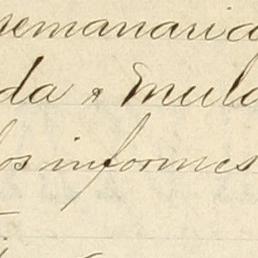 semanaria
da & Mula
los informes